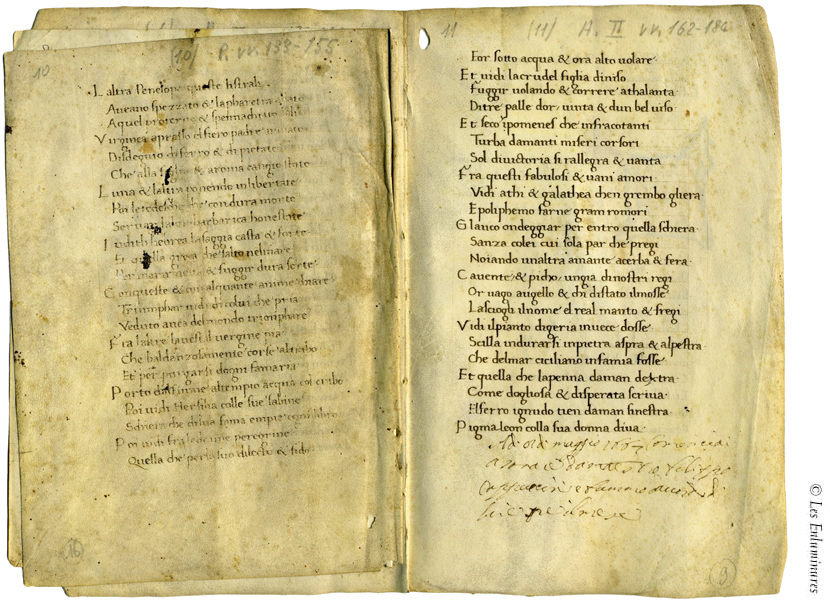 10
(10) - P. vv. 133-155
Laltra Penelope queste hstrali
Aveano spezzato & la pharetra allato
A quel proterno & spennachiate lali
Virginea apresso el fiero padre armato
Disdegnio di ferro & di pietate
Che alla & a roma cangio stato
Luna & laltra ponendo in libertate
Poi le tedesche che con dura morte
Servan la lor barbarica honestate
Iudith hebrea la saggia casta & forte
Et quella greca che salto nel mare
Per morir netta & fuggir dura sorte
Con queste & con alquante anime chiare
Triumphar vidi di colui che pria
Veduto avea del mondo triomphare
Fra laltre la vestal vergine pia
Che baldanzosamente corse al tibro
Et per purgarsi dogni fama ria
Porto dal fiume al tempio acqua col cribo
Poi vidi Hersilia colle sue sabine
Schiera che di sua fama empie ogni libro
Poi vidi fra le donne peregrine
Quella che per lo suo dilecto & fido
16
11
(11) A. II vv. 162-186
For sotto acqua & ora alto volare
Et vidi la crudel figlia di niso
Fuggir volando & correre athalanta
Di tre palle dor vinta & dun bel viso
Et seco ipomenes che infra cotanti
Turba damanti miseri corsori
Sol di victoria si rallegra & vanta
Fra questi fabulosi & vani amori
Vidi athi & galathea chen grembo gliera
E poliphemo farne gram romori
Glauco ondeggiar per entro quella schiera
Sanza colei cui sola par che pregi
Noiando unaltra amante acerba & fera
Cavente & picho un gia di nostri regi
Or vago augello & chi di stato il mosse
Lasciogli il nome el real manto & fregi
Vidi il pianto di geria invece dosse
Scilla indurarsi in pietra aspra & alpestra
Che del mar ciciliano infamia fosse
Et quella che la penna da man dextra
Come dogliosa & disperata scriva
El ferro ignudo tien da man finestra
Pigmaleon colla sua donna diva
maggio
9
© Les Enluminures